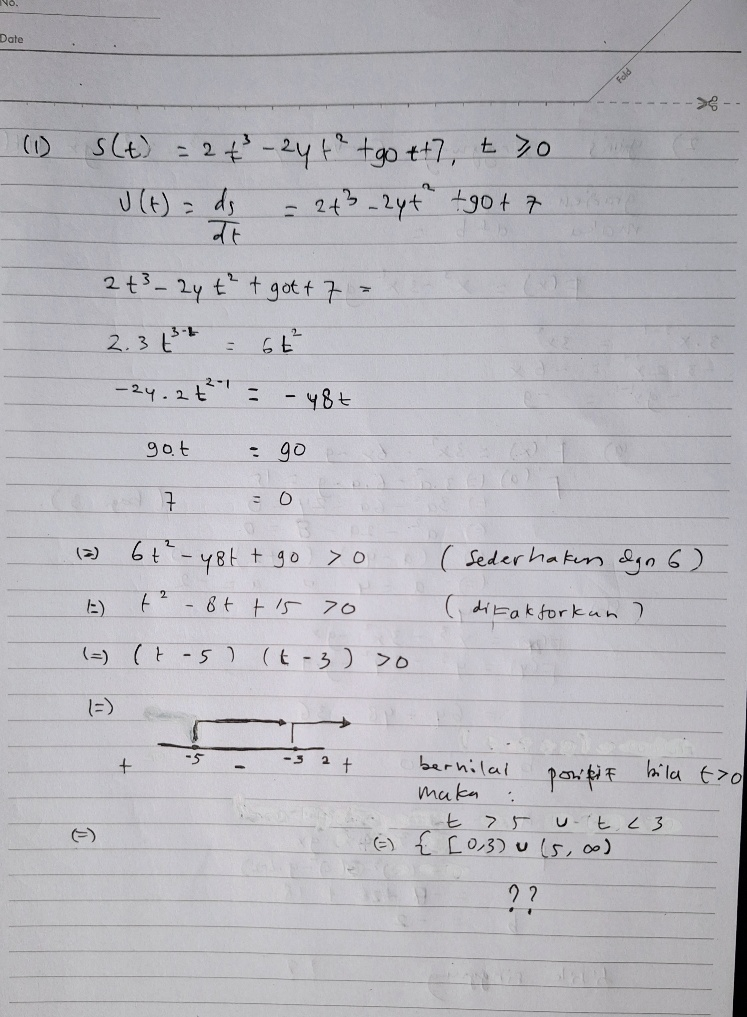 No.
Date
Fold
(1) S(t) = 2t³ - 24t² + 90t + 7, t ≥ 0
V(t) = ds/dt = 2t³ - 24t² + 90t 7
2t³ - 24t² + 90t + 7 =
2.3 t³⁻¹ = 6t²
-24.2t²⁻¹ = -48t
90.t = 90
7 = 0
(=) 6t² - 48t + 90 > 0 (Sederhakan dgn 6)
(=) t² - 8t + 15 > 0 (difaktorkan)
(=) (t - 5) (t - 3) > 0
(=)
+ -5 - -3 2 + bernilai positif bila t > 0
maka :
t > 5 ∪ t < 3
(=) (=) { [0,3) ∪ (5, ∞)
??